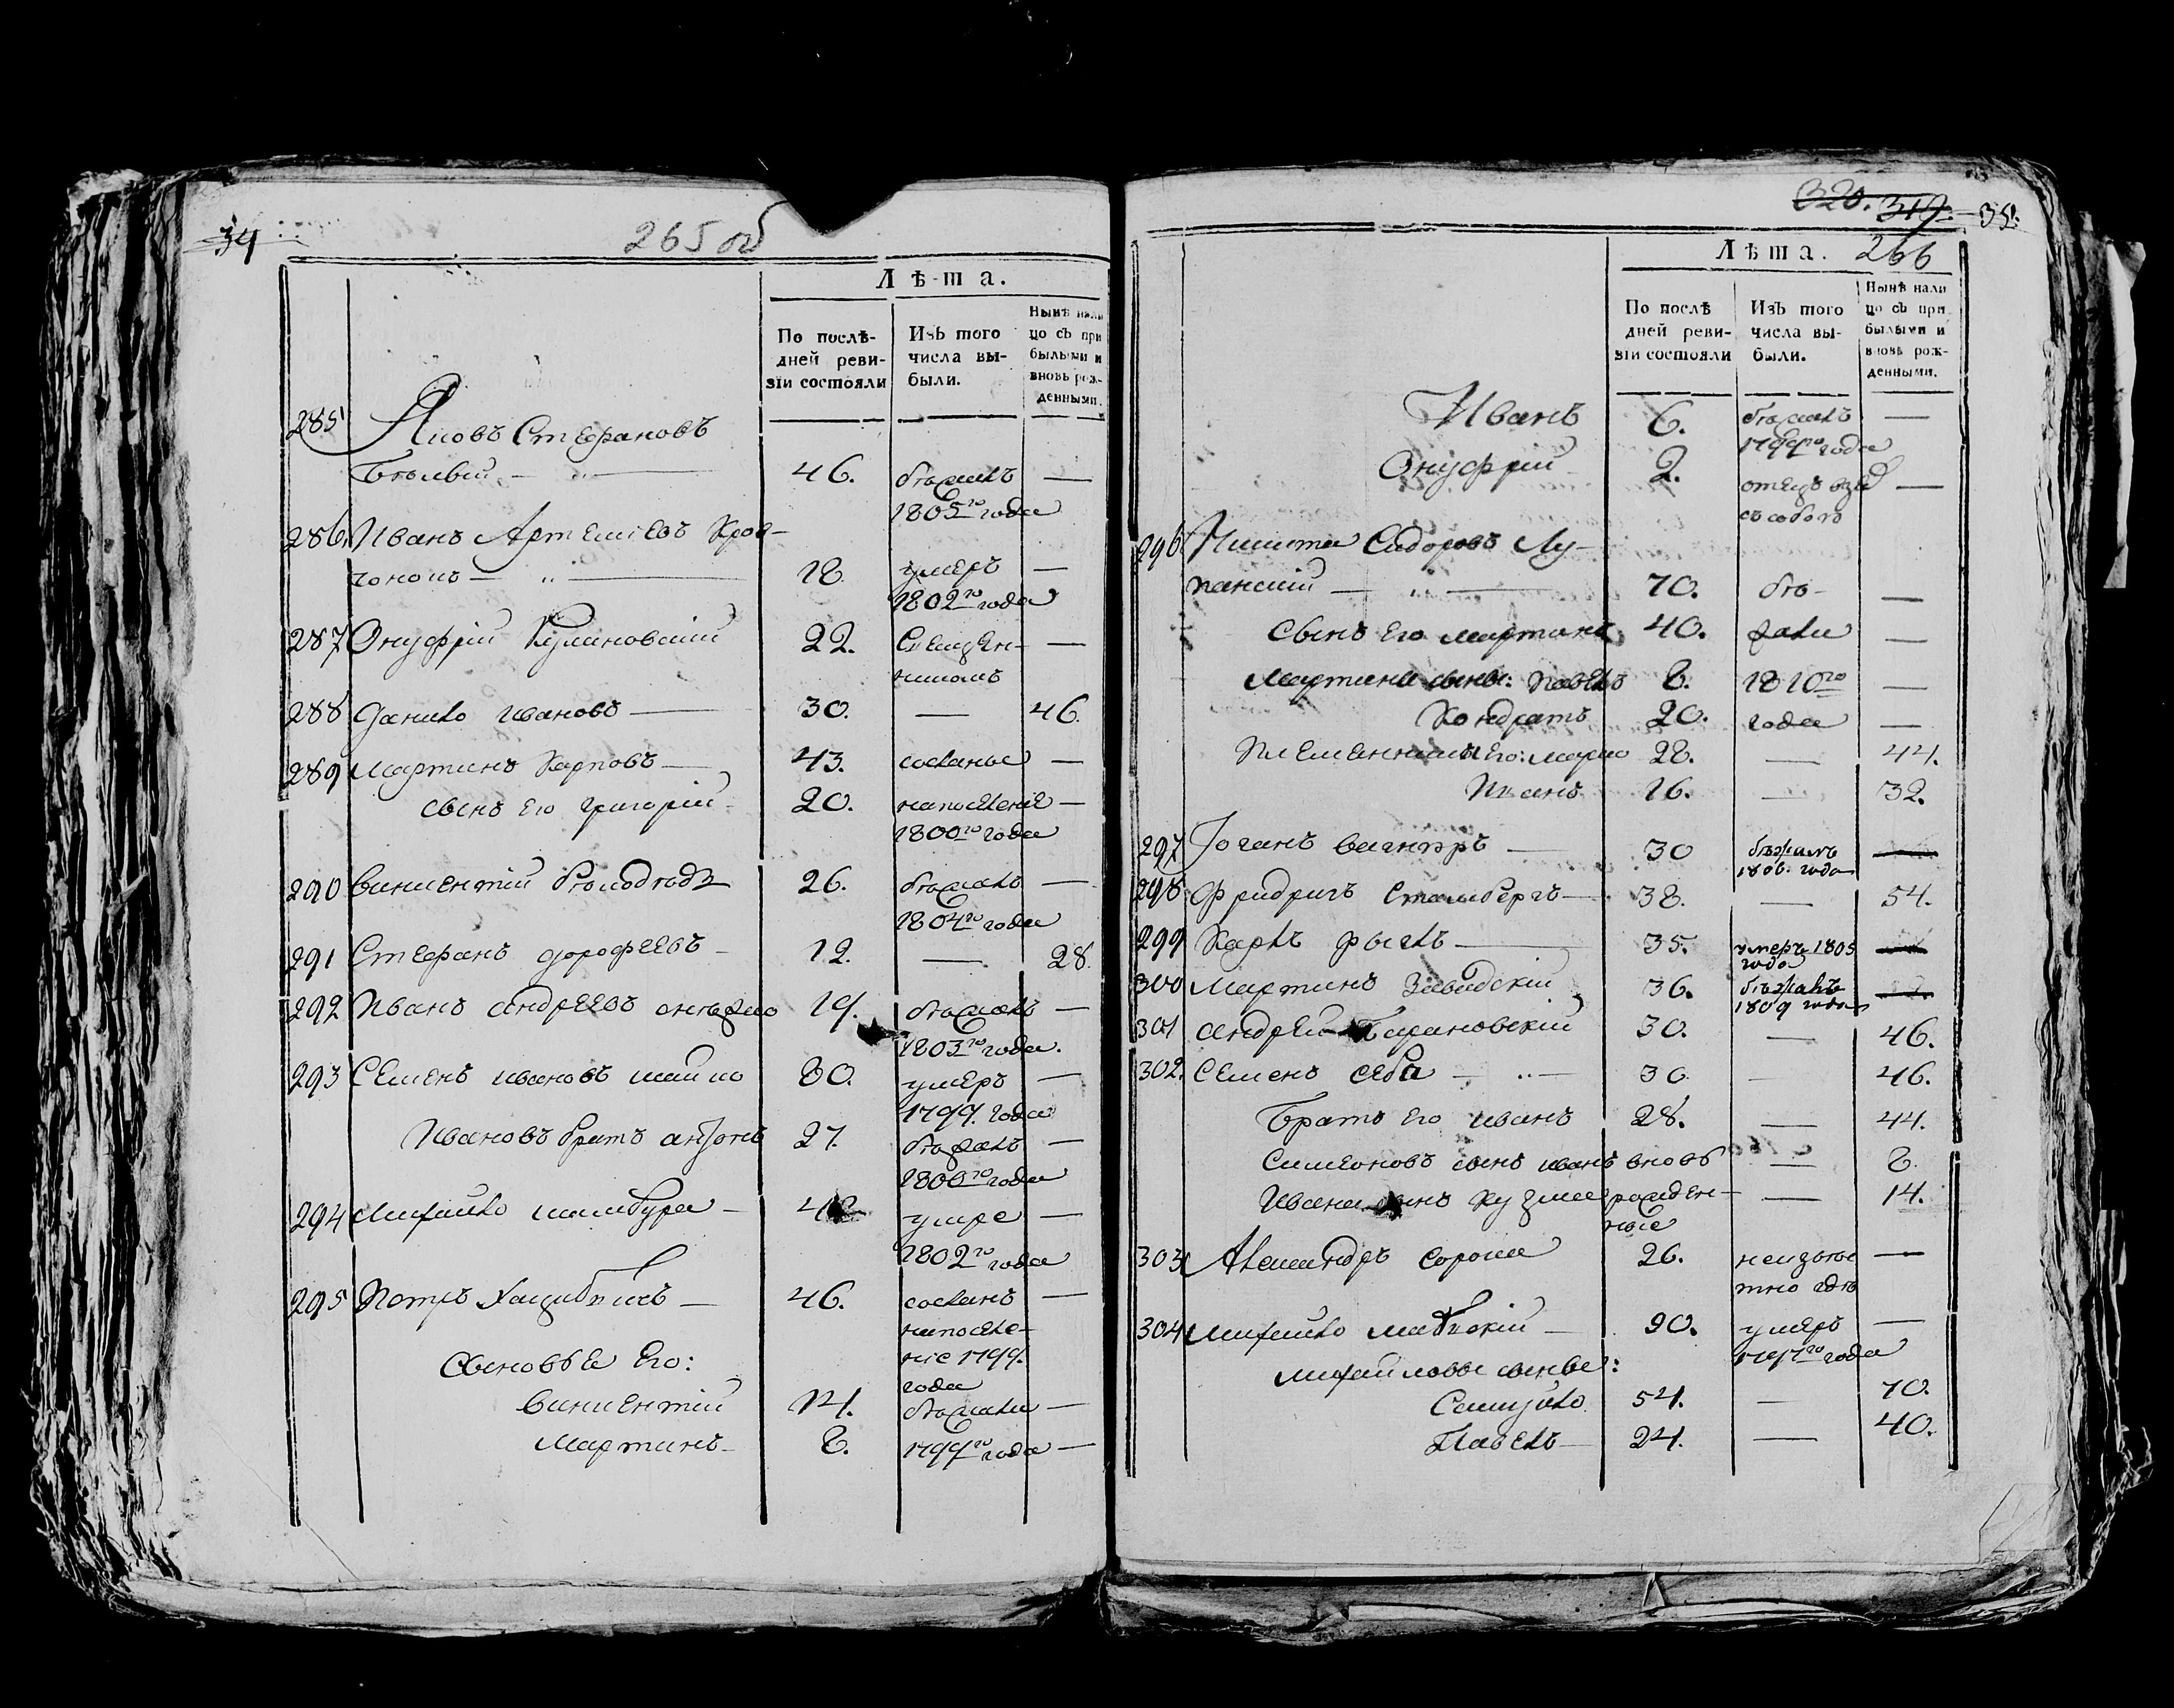 34
265 об
Лѣта.
По послѣ-
дней реви-
зїи состояли
Изъ того
числа вы-
были.
Нынѣ нали
цо съ при
былыми и
вновь рож-
денными.
285 Яковъ Стефановъ
46. бѣжалъ —
1805го года
286. Иванъ Артемїевъ
18. умеръ —
1802го года
287 Онуфрїй
22. Священ- —
никомъ
288 Данило Ивановъ — 30. — 46.
289 Мартинъ Карповъ — 43. сосланы —
сынъ его Григорїй 20. напоселенїе —
1800го года
290 Викентїй 26. бѣжалъ —
1804го года
291 Стефанъ Дорофеевъ — 12. — 28.
292 Иванъ Андреевъ 19. бѣжалъ —
1803го года.
293 Семенъ Ивановъ 80. умеръ —
1799. года
Ивановъ братъ Антонъ 27. бѣжалъ —
1800го года
294 Михайло — умре —
1802го года
295 Петръ — 46. сосланъ —
напоселе-
нїе 1799.
Сыновья его:
года
Викентїй 14. бѣжали —
Мартинъ — 8. 1799го года —
320. 319. 35.
266
Лѣта.
По послѣ
дней реви-
зїи состояли
Изъ того
числа вы-
были.
Нынѣ нали
цо съ при
былыми и
вновь рож-
денными.
Иванъ 6. бѣжалъ —
1799го года
Онуфрїй 2. отецъ взял —
съ собою
296 Никита Сидоровъ Лу-
панскїй — 70. бѣ- —
Сынъ его Мартинъ 40. жали —
Мартина сыны: Павелъ 8. 1810го —
Кондратъ 20. года —
Племенники его: Марко 28. — 44.
Иванъ 16. — 32.
297 Іоганъ Вагнеръ — 30 бѣжалъ —
1806. года
298 Фридрихъ Стамбергъ — 38. — 54.
299 Карлъ — 35. умеръ 1805 —
года
300 Мартинъ Завадскїй 36. бѣжалъ —
1809 года
301 Андрей Барановскїй 30. — 46.
302. Семенъ — 30 — 46.
Братъ его Иванъ 28. — 44.
Симеоновъ сынъ Иванъ вновь — 8.
Ивана сынъ Кузма рожден- — 14.
ные
303 Александръ Сорока 26. неизвѣс —
тно гдѣ
304 Михайло — 90. умеръ —
1797го года
Михайловы сыны:
54. — 70.
Павелъ — 24. — 40.